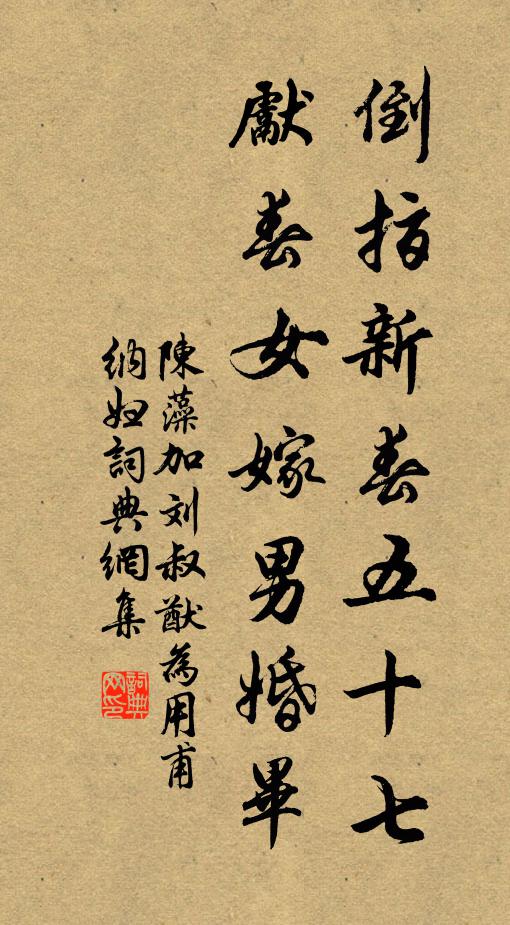 倒指新春五十七
獻春女嫁男婚畢
陳藻加刘叔猷為用甫
納婦詞典網集
詞典網印